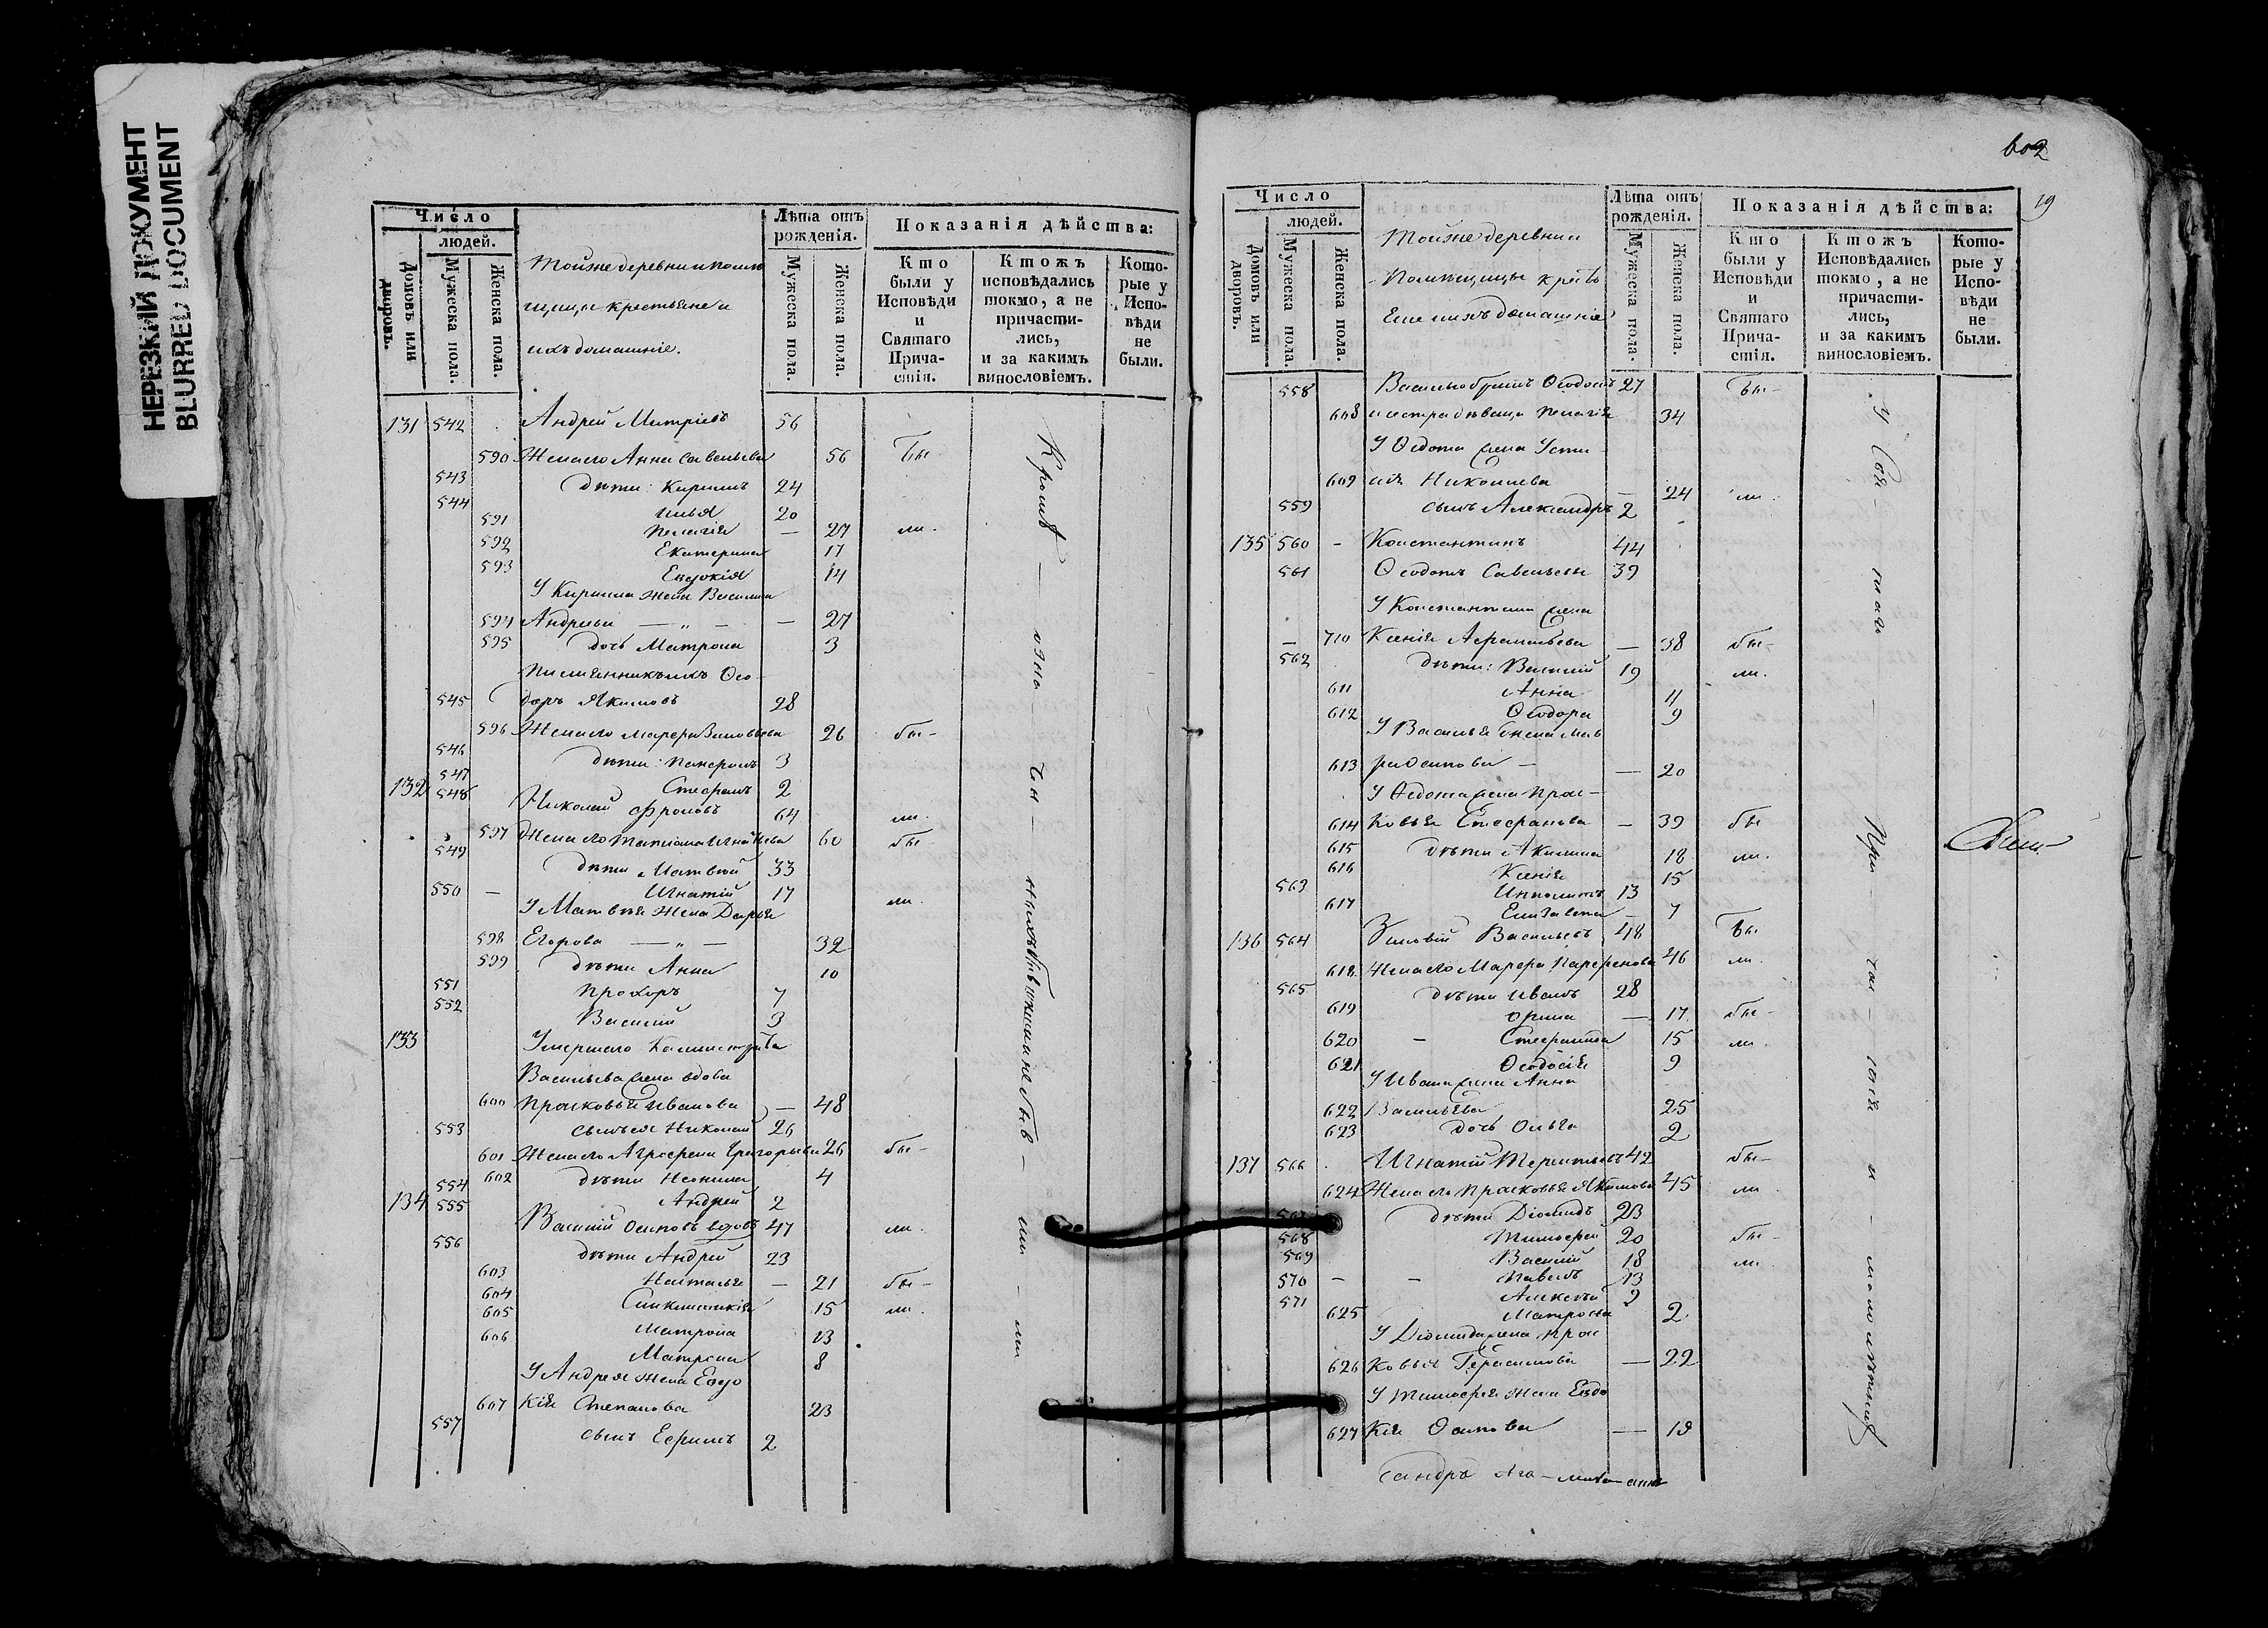 НЕРЕЗКИЙ ДОКУМЕНТ
BLURRED DOCUMENT
Число
людей.
Домовъ или дворовъ.
Мужеска пола.
Женска пола.
Тойже деревни и помѣ
щицы крестьяне и
ихъ домашніе.
Лѣта отъ рожденія.
Мужеска пола.
Женска пола.
Показанія дѣйства:
Кто были у Исповѣди и Святаго Прича-стія.
Ктожъ исповѣдались токмо, а не причасти-лись, и за какимъ винословіемъ.
Кото-рые у Испо-вѣди не были.
131 542 Андрей Митріевъ 56
590 Жена его Анна Савельева 56 бы-
543 дѣти: Кирилъ 24
544 Илья 20
591 Пелагія — 27 ли.
592 Екатерина 17
593 Евдокія 14
У Кирилла жена Василиса
594 Андреева — „ — — 27
595 дочь Матрона 3
Племянникъ ихъ Ѳео
545 доръ Якимовъ 28
596 Жена его Марфа Зиновьева 26 бы-
546 дѣти: Панфилъ 3
547 Стефанъ 2
132 548 Николай Фроловъ 64 ли.
597 Жена его Татіана Игнатьева 60 бы-
549 дѣти Матвей 33
550 — Игнатій 17 ли.
У Матвѣя жена Дарья
598 Егорова — „ — 32
599 дѣти Анна 10
551 Прохоръ 7
552 Василій 3
133 Умершаго Калистрата
Васильева жена вдова
600 Прасковья Иванова — 48
553 сынъ ея Николай 26
601 Жена его Аграфена Григорьева 26 бы-
602 дѣти Неонила 4
554 Андрей 2
134 555 Василій Осиповъ вдовъ 47 ли.
556 дѣти Андрей 23
603 Наталья — 21 бы-
604 Синклитикія 15 ли.
605 Матрона 13
606 Матрона 8
У Андрея жена Евдо
607 кія Степанова 23
557 сынъ Ефимъ 2
602
19
Число
людей.
Домовъ или дворовъ.
Мужеска пола.
Женска пола.
Тойже деревни
Помѣщицы крестъ
Лѣта отъ рожденія.
Мужеска пола.
Женска пола.
Показанія дѣйства:
Кто были у Исповѣди и Святаго Прича-стія.
Ктожъ Исповѣдались токмо, а не причасти-лись, и за какимъ винословіемъ.
Кото-рые у Испо-вѣди не были.
558 Василью братъ Ѳедотъ 27 бы-
608 и сестра дѣвица Пелагія 34
У Ѳедота жена Усти
609 нія Николаева — 24 ли.
559 сынъ Александръ 2
135 560 - Константинъ 44
561 Ѳедотъ Савельевы 39
У Константина жена
— 710 Ксенія Афанасьева — 38 бы-
562 дѣти: Василій 19 ли.
611 Анна 11
612 Ѳеодора 9
У Василья жена Мав
613 ра Осипова — — 20
У Ѳедота жена Прас-
614 ковья Стефанова — 39 бы
615 дѣти Акилина 18 ли.
616 Ксенія 15
563 Ипполитъ 13
617 Елизавета — 7
136 564 Зиновій Васильевъ 48 бы
618 Жена его Марфа Парфенова 46 ли
565 дѣти Иванъ 28
619 Орина — 17 бы-
620 - Стефанида 15 ли.
621 Ѳеодосія 9
У Ивана жена Анна
622 Васильева 25
623 дочь Ольга 2
137 566 Игнатій Терентьевъ 42 бы-
624 Жена его Прасковья Якимова 45 ли
дѣти Діомидъ 23
568 Тимофей 20 бы-
569 Василій 18 ли.
570 — - Павелъ 13
571 Алексѣй 9
625 Матрона 2
У Діомида жена Прас
626 ковья Герасимова — 22
У Тимофея жена Евдо
627 кія Осипова — 19